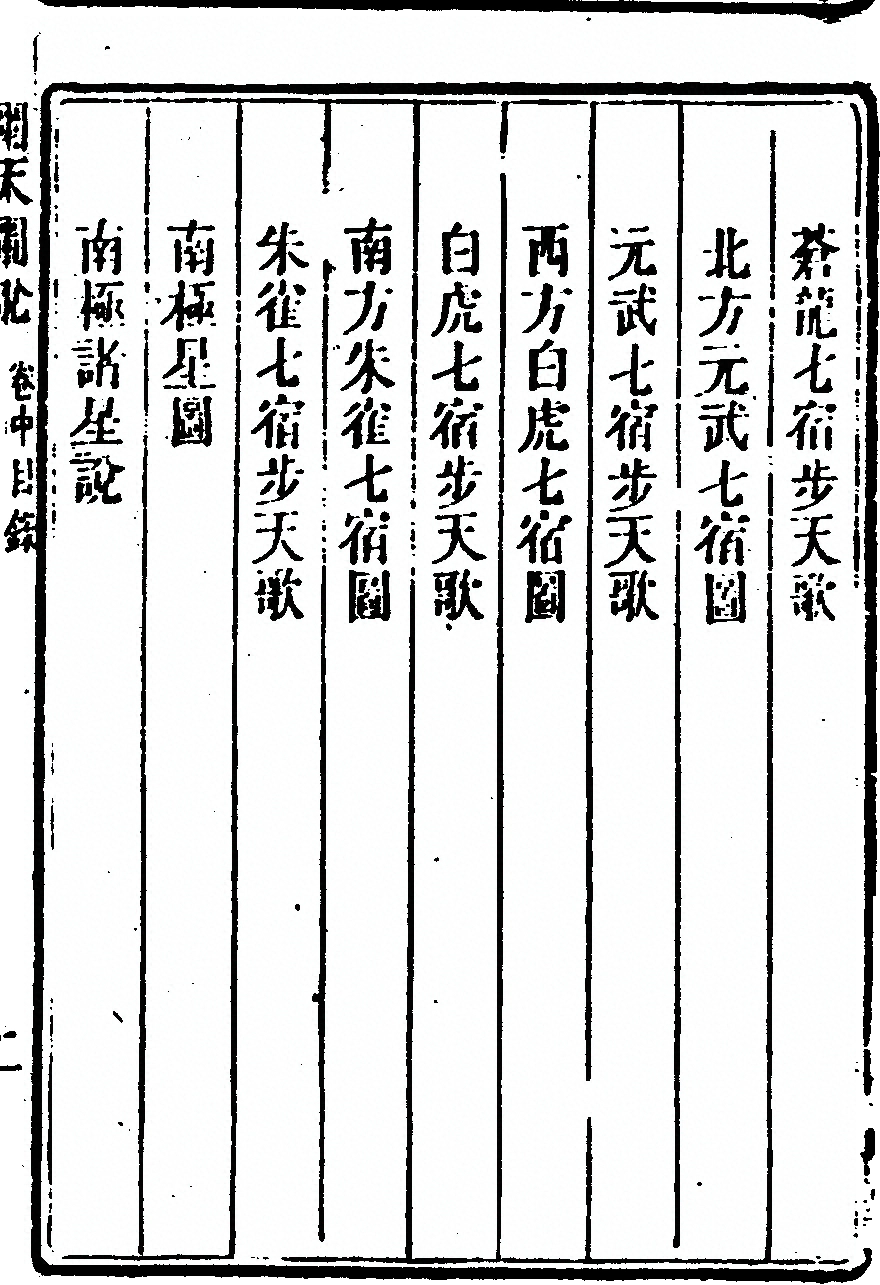 蒼龍七宿步天歌
北方元武七宿圖
元武七宿步天歌
西方白虎七宿圖
白虎七宿步天歌
南方朱雀七宿圖
朱雀七宿步天歌
南極星圖
南極諸星說
天圖說 卷中目錄
二